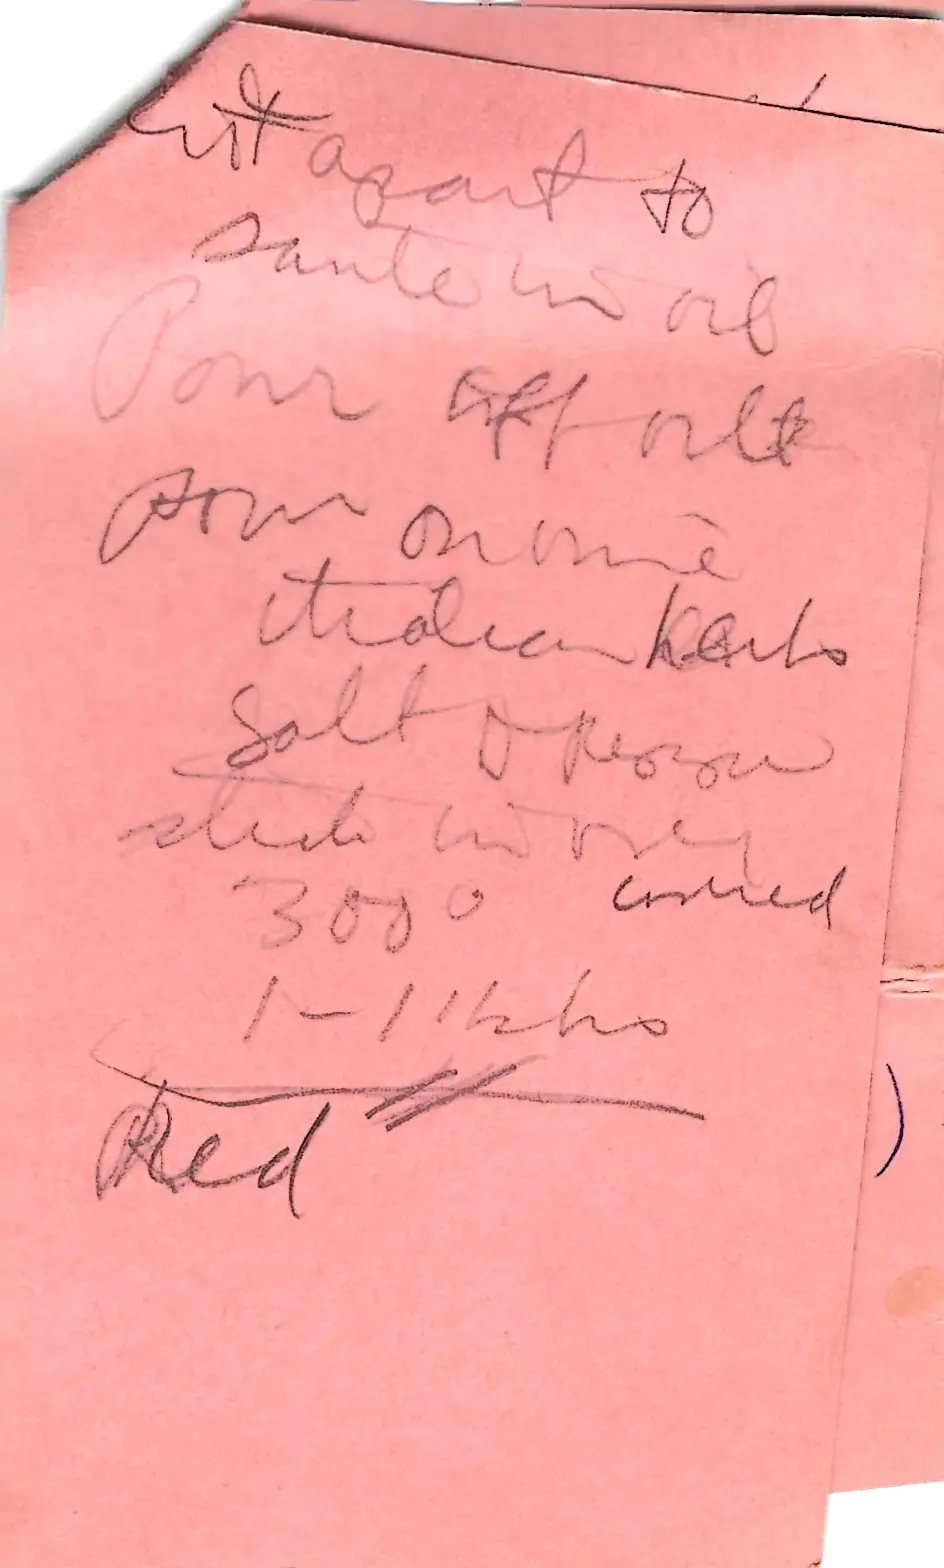 Cut apart to
saute in oil
Pour off oil &
pour on wine
Italian herbs
Salt & pepper
stick in oven
300° covered
1-1 1/2 hrs
Red